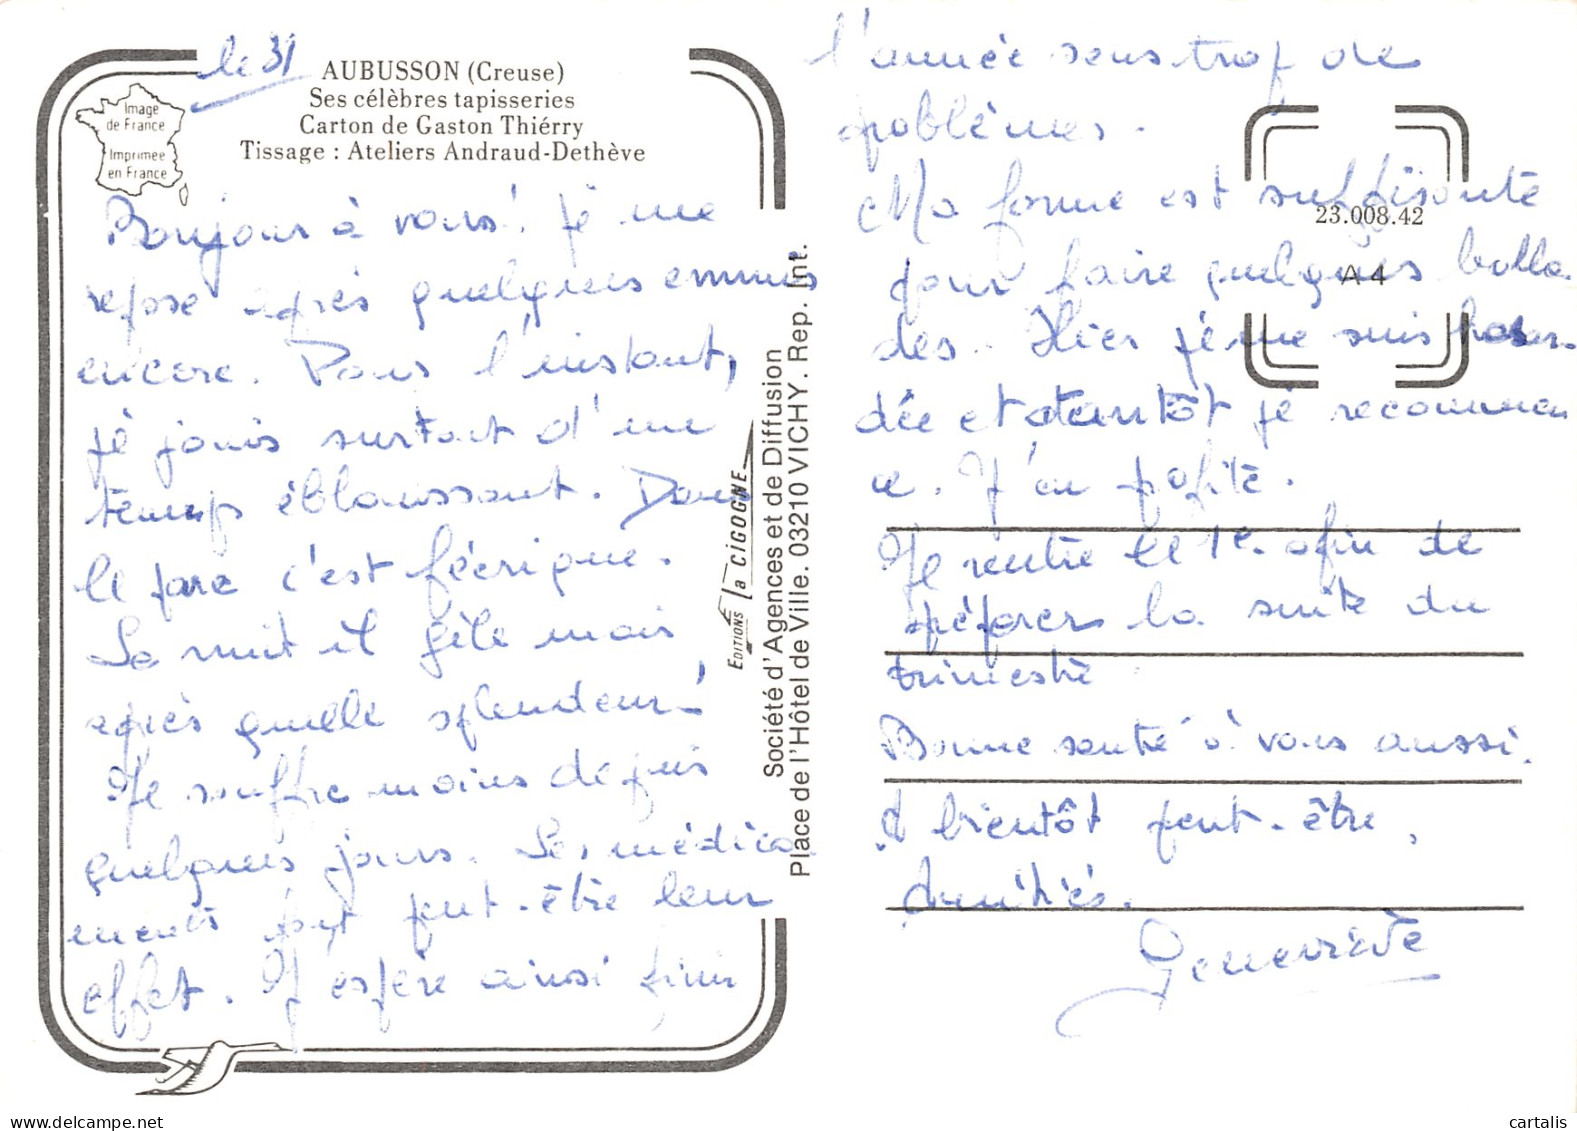 le 31
AUBUSSON (Creuse)
Ses célèbres tapisseries
Carton de Gaston Thiérry
Tissage : Ateliers Andraud-Dethève
Image
de France
Imprimée
en France
Bonjour à vous! Je me
repose après quelques ennuis
encore. Pour l'instant,
je jouis surtout d'un
temps éblouissant. Dans
le parc c'est féerique.
La nuit il gèle mais
après quelle splendeur!
Je souffre moins depuis
quelques jours. Les médica
ments ont peut-être leur
effet. J'espère ainsi finir
EDITIONS La CIGOGNE
Société d'Agences et de Diffusion
Place de l'Hôtel de Ville. 03210 VICHY. Rep. Int.
l'année sans trop de
problèmes.
Ma forme est suffisante
23.008.42
pour faire quelques balla
A 4
des. Hier je me suis
dée et tantôt je recommen
ce. J'en profite.
Je rentre le 1er afin de
préparer la suite du
trimestre
Bonne santé à vous aussi.
A bientôt peut-être,
Amitiés.
Geneviève
cartalis